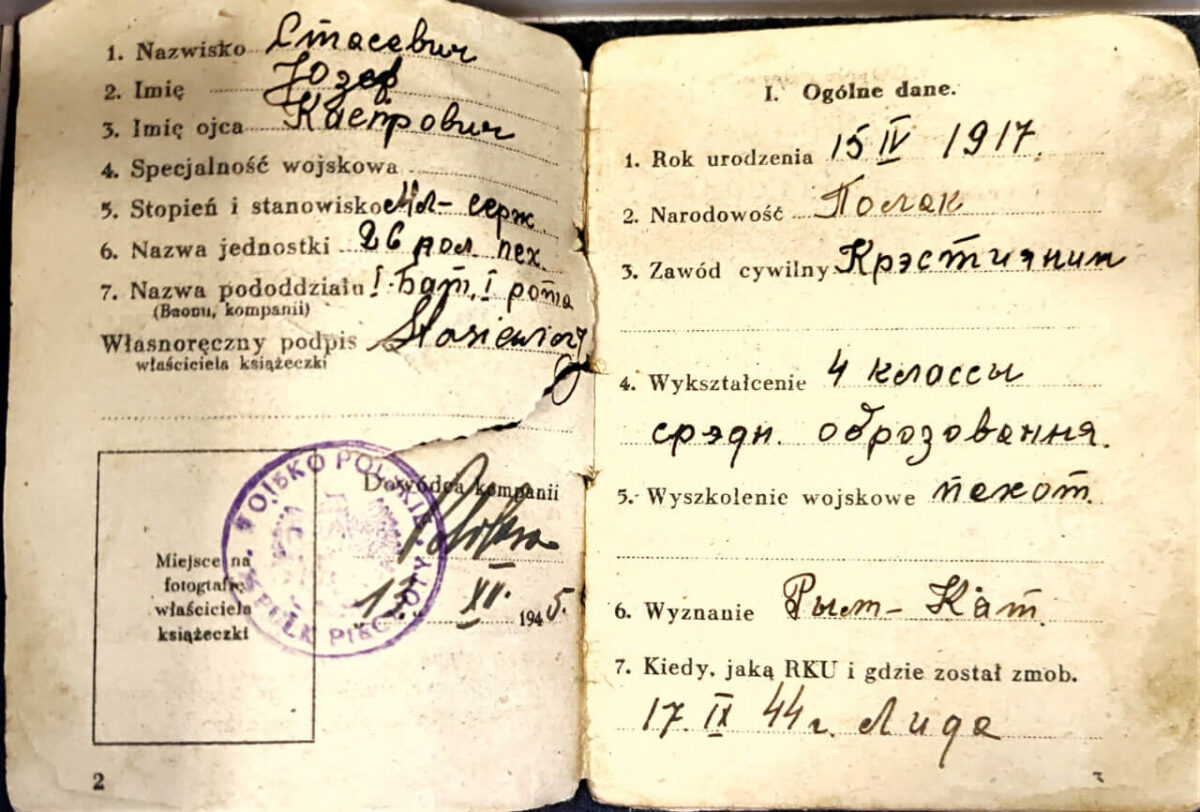 1. Nazwisko Стасевич
2. Imię Józef
3. Imię ojca Каспрович
4. Specjalność wojskowa
5. Stopień i stanowisko Мл-серж.
6. Nazwa jednostki 26 пол. пех.
7. Nazwa pododdziału I бат. I рота
(Baonu, kompanii)
Własnoręczny podpis Stasiewicz
właściciela książeczki
WOJSKO POLSKIE
PUŁK PIECHOTY
Dowódca kompanii
Miejsce na
fotografię
właściciela
książeczki
13 XII. 1945.
2
I. Ogólne dane.
1. Rok urodzenia 15 IV 1917.
2. Narodowość Поляк
3. Zawód cywilny Крэстиянин
4. Wykształcenie 4 классы
срэдн. оброзования.
5. Wyszkolenie wojskowe пехот.
6. Wyznanie Рым-Кат.
7. Kiedy, jaką RKU i gdzie został zmob.
17. IX 44 г. Лида